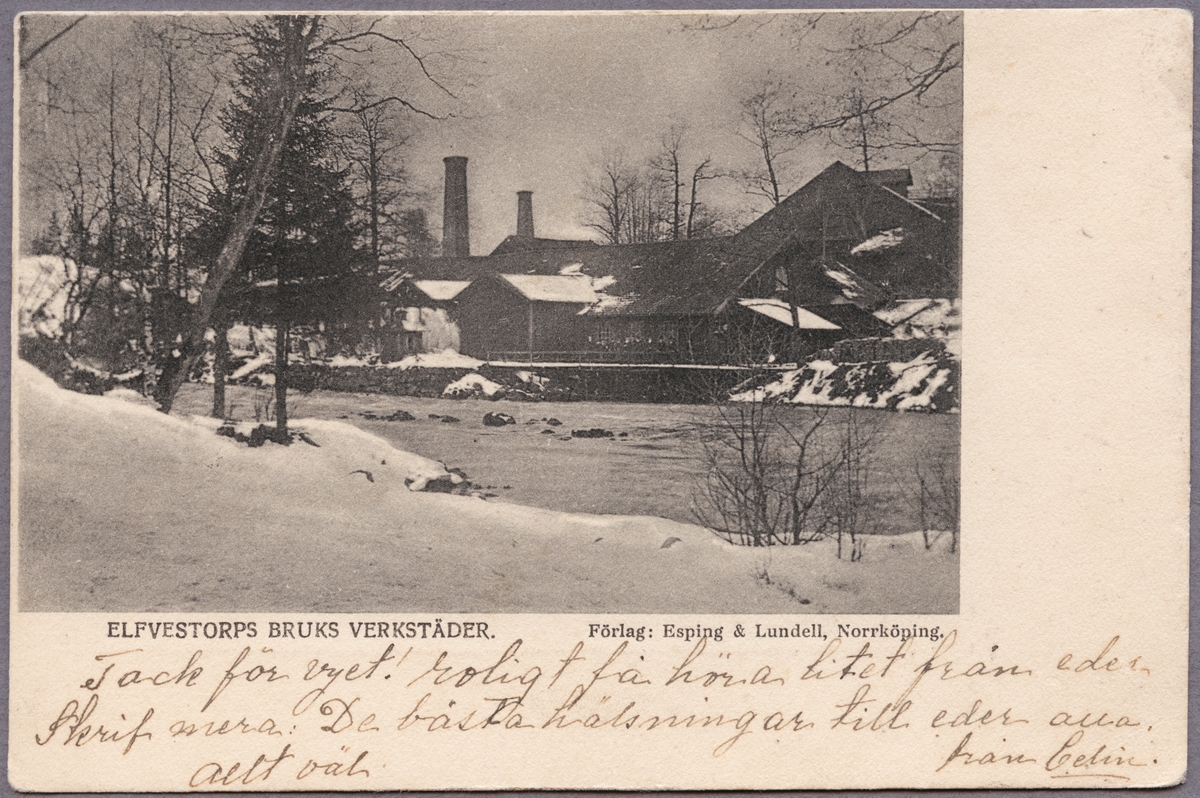 ELFVESTORPS BRUKS VERKSTÄDER.
Förlag: Esping & Lundell, Norrköping.
Tack för vyet! roligt få höra litet från eder
Skrif mera. De bästa hälsningar till eder
allt väl.
från